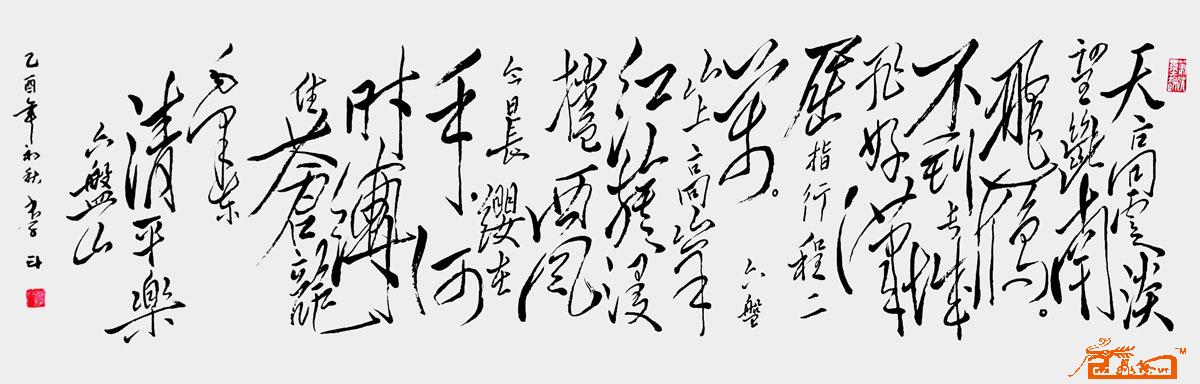 天高雲淡
望斷南
飛雁。
不到長城
非好漢
屈指行程二
萬。六盤
山上高峯
红旗漫
捲西風
今日長纓在
手。何
时縛
住蒼龍
毛澤东
清平樂
六盤山
乙酉年初秋